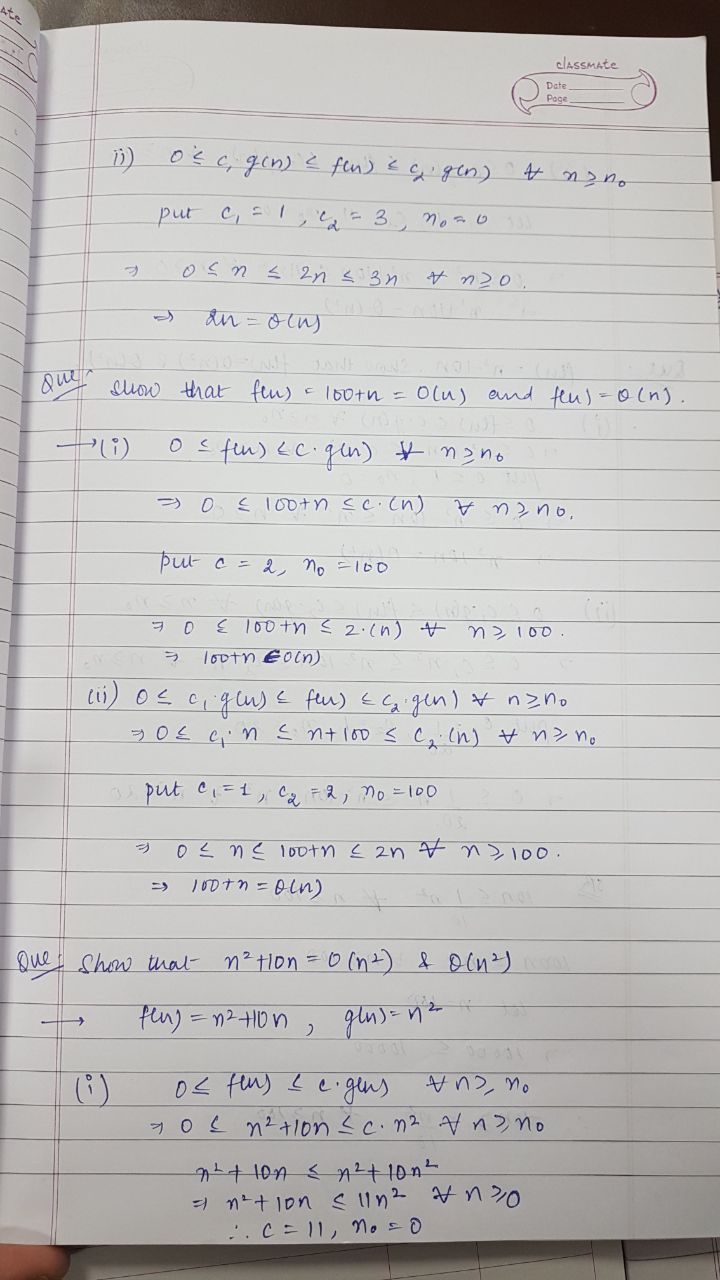 ate
classmate
Date
Page
ii) 0 ≤ c₁ g(n) ≤ f(n) ≤ c₂ · g(n) ∀ n ≥ n₀
put c₁ = 1, c₂ = 3, n₀ = 0
⇒ 0 ≤ n ≤ 2n ≤ 3n ∀ n ≥ 0.
⇒ 2n = θ(n)
Que: show that f(n) = 100+n = O(n) and f(n) = θ(n).
→ (i) 0 ≤ f(n) ≤ c · g(n) ∀ n ≥ n₀
⇒ 0 ≤ 100+n ≤ c · (n) ∀ n ≥ n₀.
put c = 2, n₀ = 100
⇒ 0 ≤ 100+n ≤ 2·(n) ∀ n ≥ 100.
⇒ 100+n ∈ O(n)
(ii) 0 ≤ c₁ · g(n) ≤ f(n) ≤ c₂ · g(n) ∀ n ≥ n₀
⇒ 0 ≤ c₁ · n ≤ n+100 ≤ c₂ · (n) ∀ n ≥ n₀
put c₁ = 1, c₂ = 2, n₀ = 100
⇒ 0 ≤ n ≤ 100+n ≤ 2n ∀ n ≥ 100.
⇒ 100+n = θ(n)
Que: Show that n²+10n = O(n²) & θ(n²)
→ f(n) = n²+10n, g(n) = n²
(i) 0 ≤ f(n) ≤ c · g(n) ∀ n ≥ n₀
⇒ 0 ≤ n²+10n ≤ c · n² ∀ n ≥ n₀
n² + 10n ≤ n² + 10n²
⇒ n² + 10n ≤ 11n² ∀ n ≥ 0
∴ c = 11, n₀ = 0